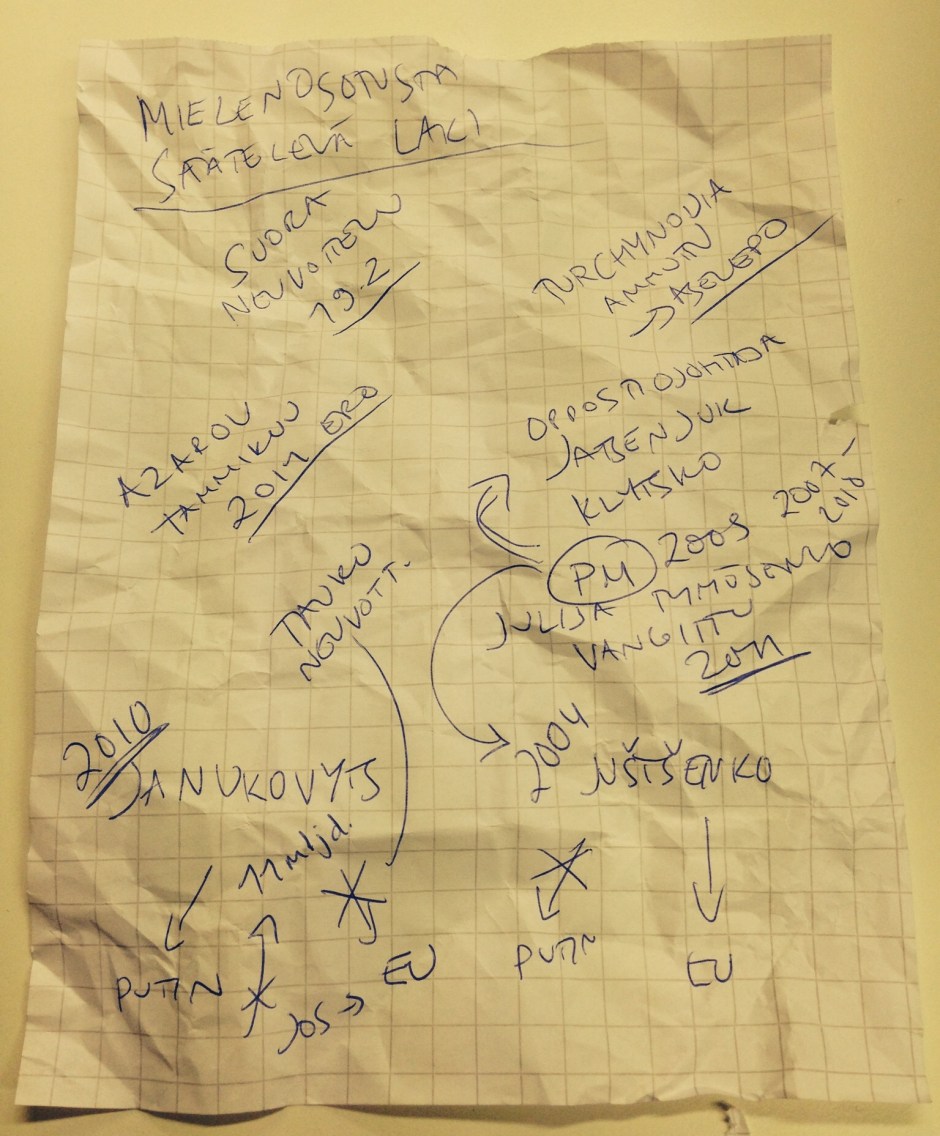 MIELENOSOTUSTA
SÄÄTELEVÄ LAKI
SUORA
NEUVOTELU
19.2
TURCHYNOVIA
AMMUTU
→ ASELEPO
AZAROV
TAMMIKUU
2014 ERO
OPPOSITIOJOHTAJA
JATSENJUK
KLYTSKO
PM 2005 2007–
2010
JULIJA TYMOSENKO
VANGITTU
2011
TAUKO
NEUVOTT.
2010
JANUKOVYTS
2004 JUŠTŠENKO
11 mljd.
PUTIN
JOS →
EU
PUTIN
EU